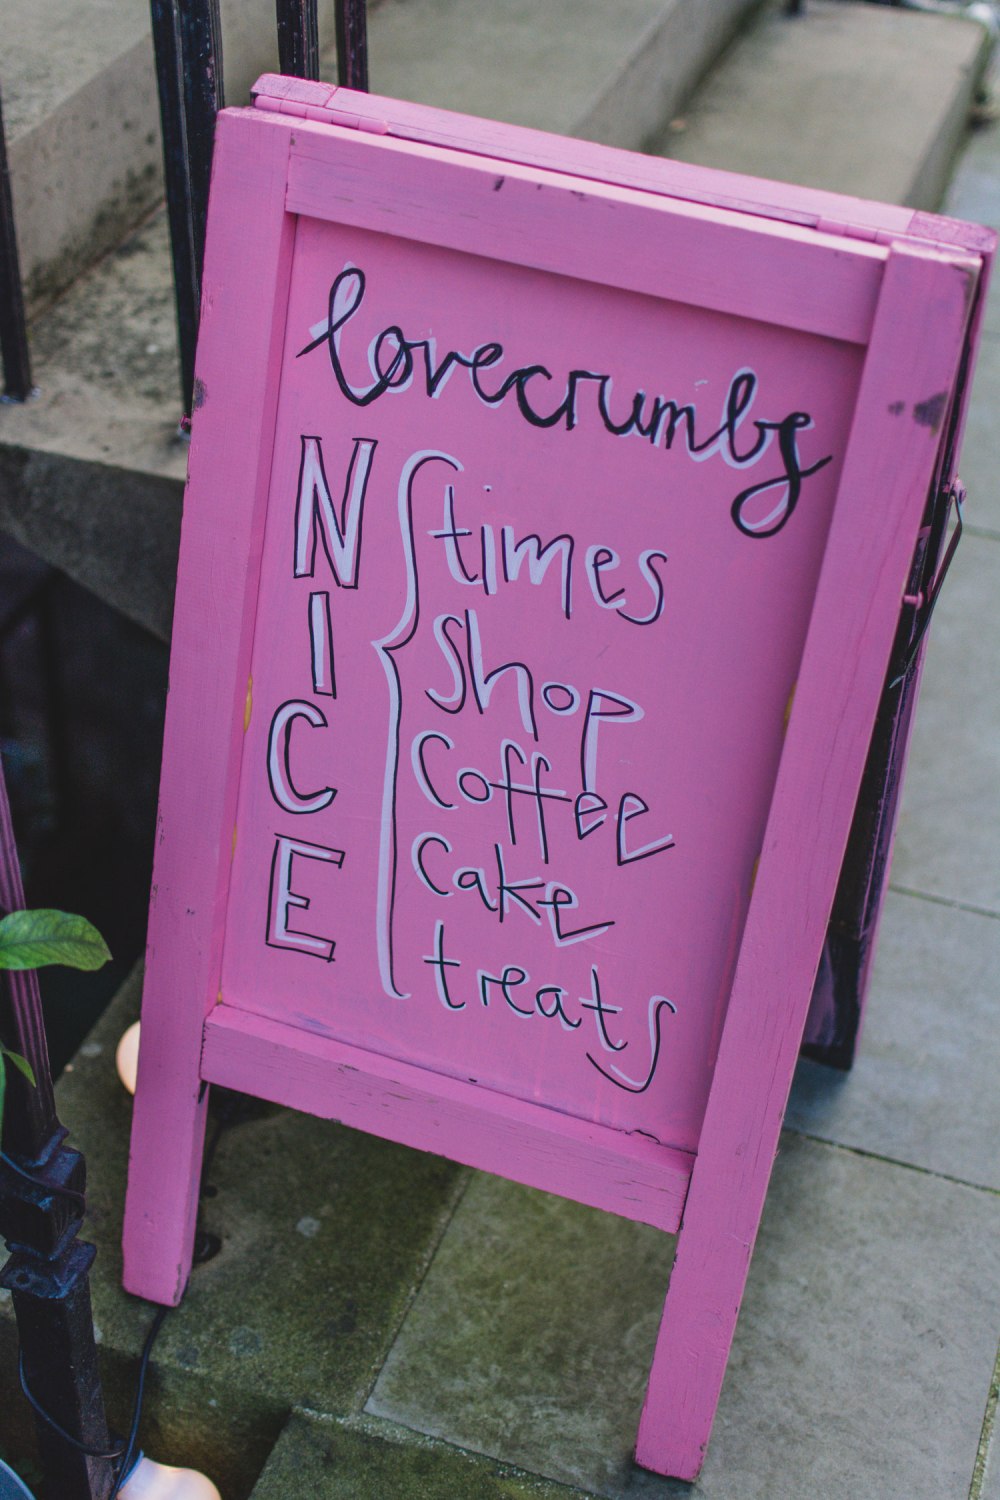 lovecrumbs
NICE { times
shop
Coffee
Cake
treats